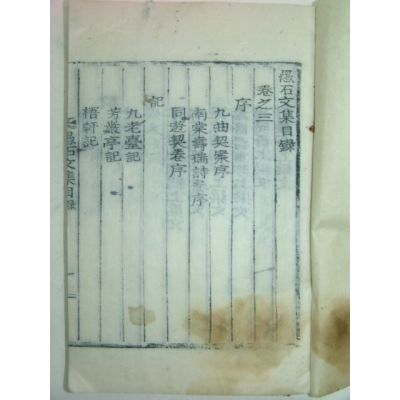 愚石文集目錄
卷之三
序
九曲契案序
南棠壽瑞詩序
同遊契卷序
記
九老臺記
芳巖亭記
梧軒記
愚石文集目錄